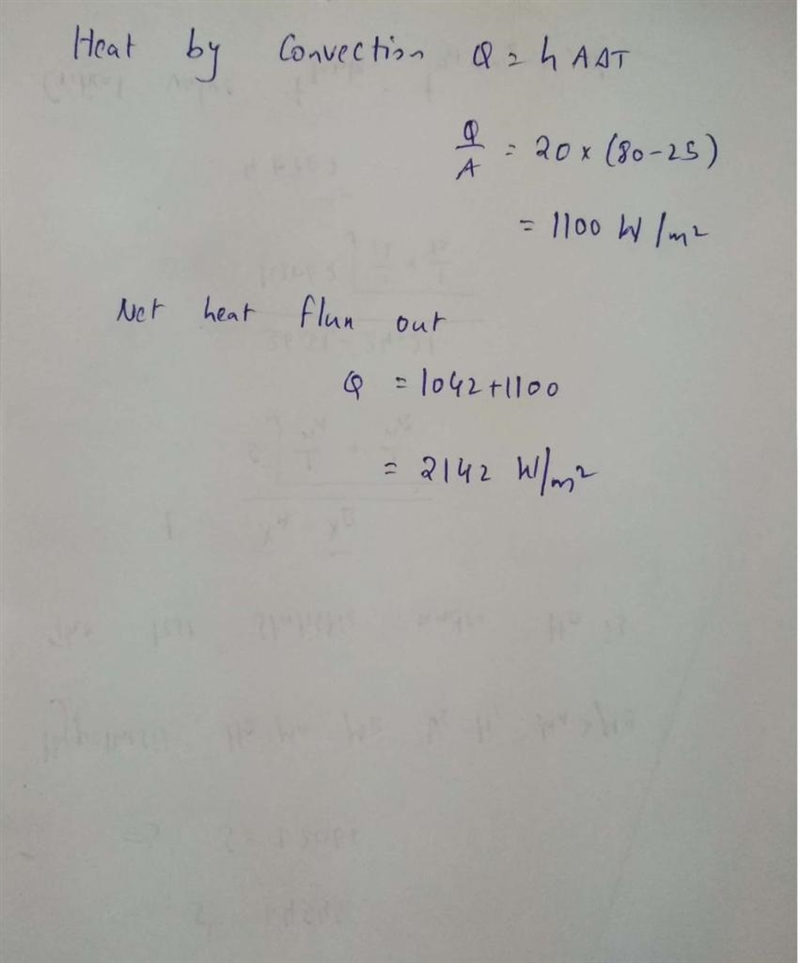 Heat by Convection Q = h A ΔT
Q/A = 20 × (80-25)
= 1100 W/m²
Net heat flux out
Q = 1042+1100
= 2142 W/m²